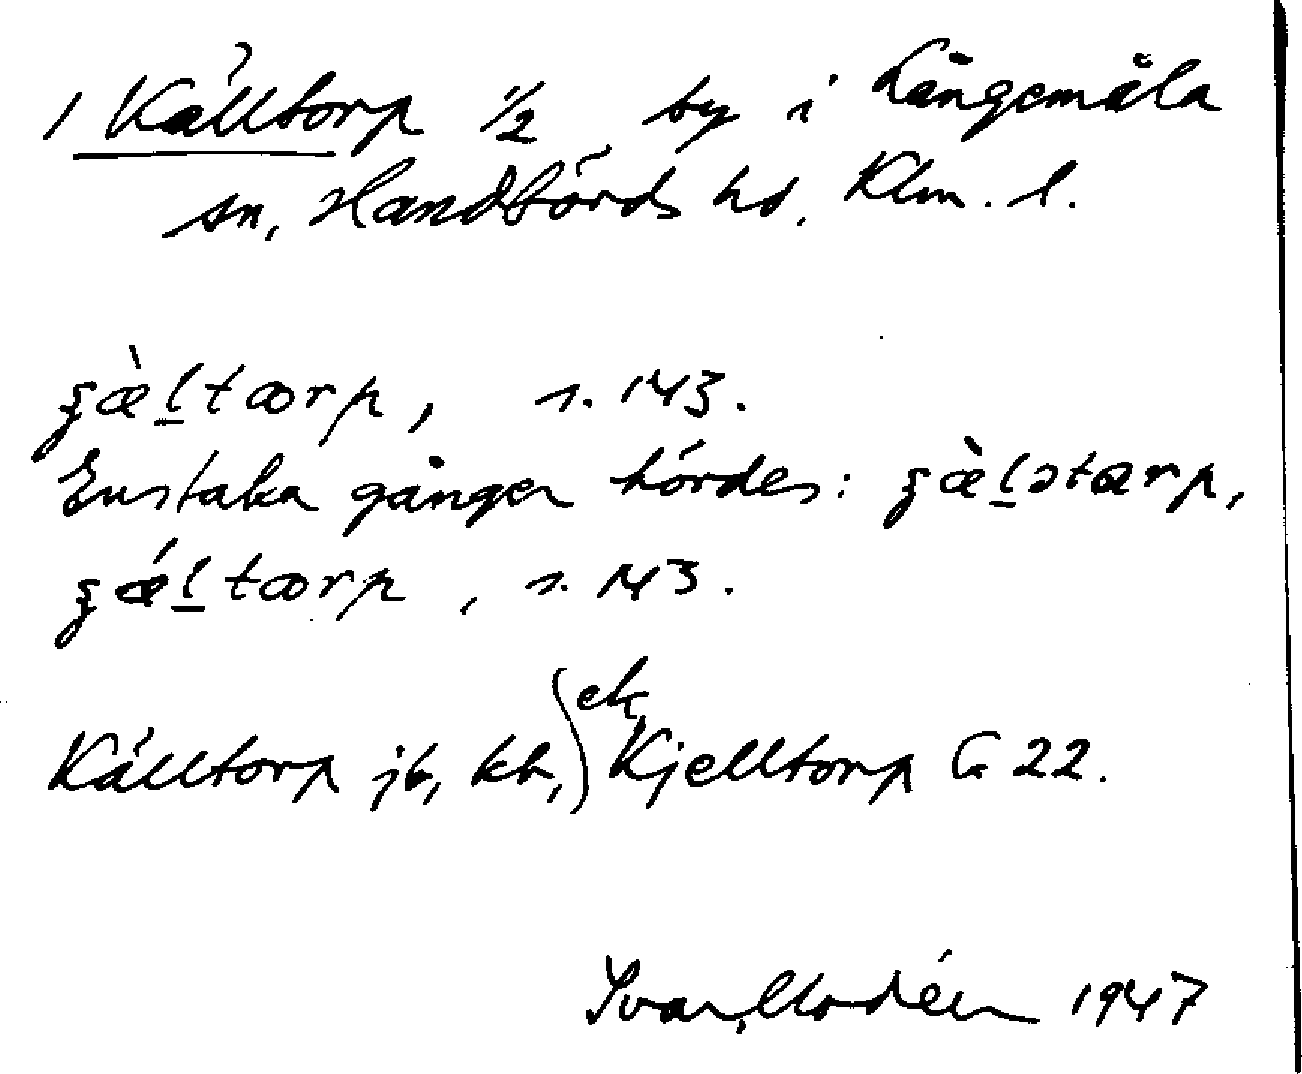 1 Källtorp 1/2 by i Långemåla
sn, Handbörds hd, Klm. l.
ʒæ̀l̲tærp, s. 143.
Enstaka gånger hördes: ʒæ̀l̲ətærp,
ʒǽl̲tærp, s. 143.
Källtorp jb, kb, ek, Kjelltorp G 22.
Ivar Modéer 1947